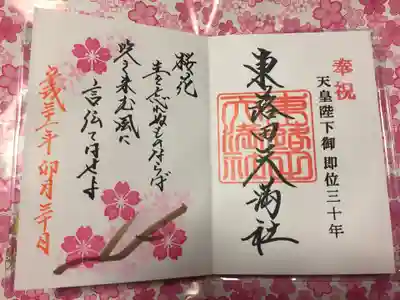 奉祝
天皇陛下御即位三十年
東蕗田天満社
東蕗田
天満社
桜花
主を忘れぬものならば
吹き来む風に
言伝てはせよ
年 卯月